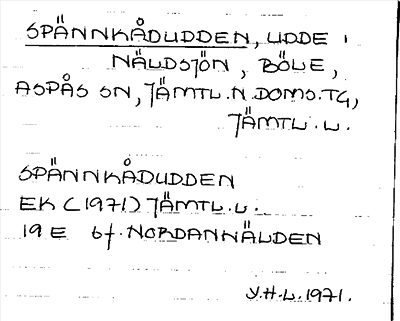 SPÄNNKÅDUDDEN, UDDE I
NÄLDSJÖN, BÖLE,
ASPÅS SN, JÄMTL.N.DOMS.TG,
JÄMTL.L.
SPÄNNKÅDUDDEN
EK (1971) JÄMTL.L.
19E 6f. NORDANNÄLDEN
Y.H-L.1971.